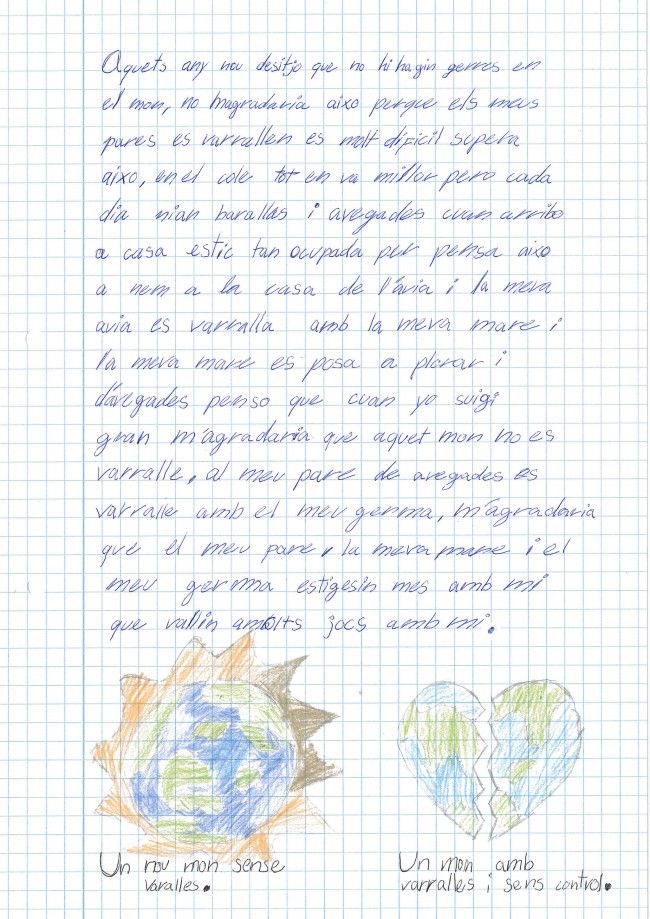 Aquets any nou desitjo que no hi hagin gerres en
el mon, no magradaria aixo perque els meus
pares es varrallen es molt dificil supera
aixo, en el cole tot en va millor pero cada
dia nian barallas i avegades cuan arribo
a casa estic tan ocupada per pensa aixo
a nem a la casa de l'avia i la meva
avia es varralla amb la meva mare i
la meva mare es posa a plorar i
d'avegades penso que cuan yo suigi
gran m'agradaria que aquet mon no es
varralle, al meu pare de avegades es
varralle amb el meu germa, m'agradaria
que el meu pare, la meva mare i el
meu germa estigesin mes amb mi
que vallin amolts jocs amb mi.
Un nou mon sense
varalles.
Un mon amb
varralles i sens control.